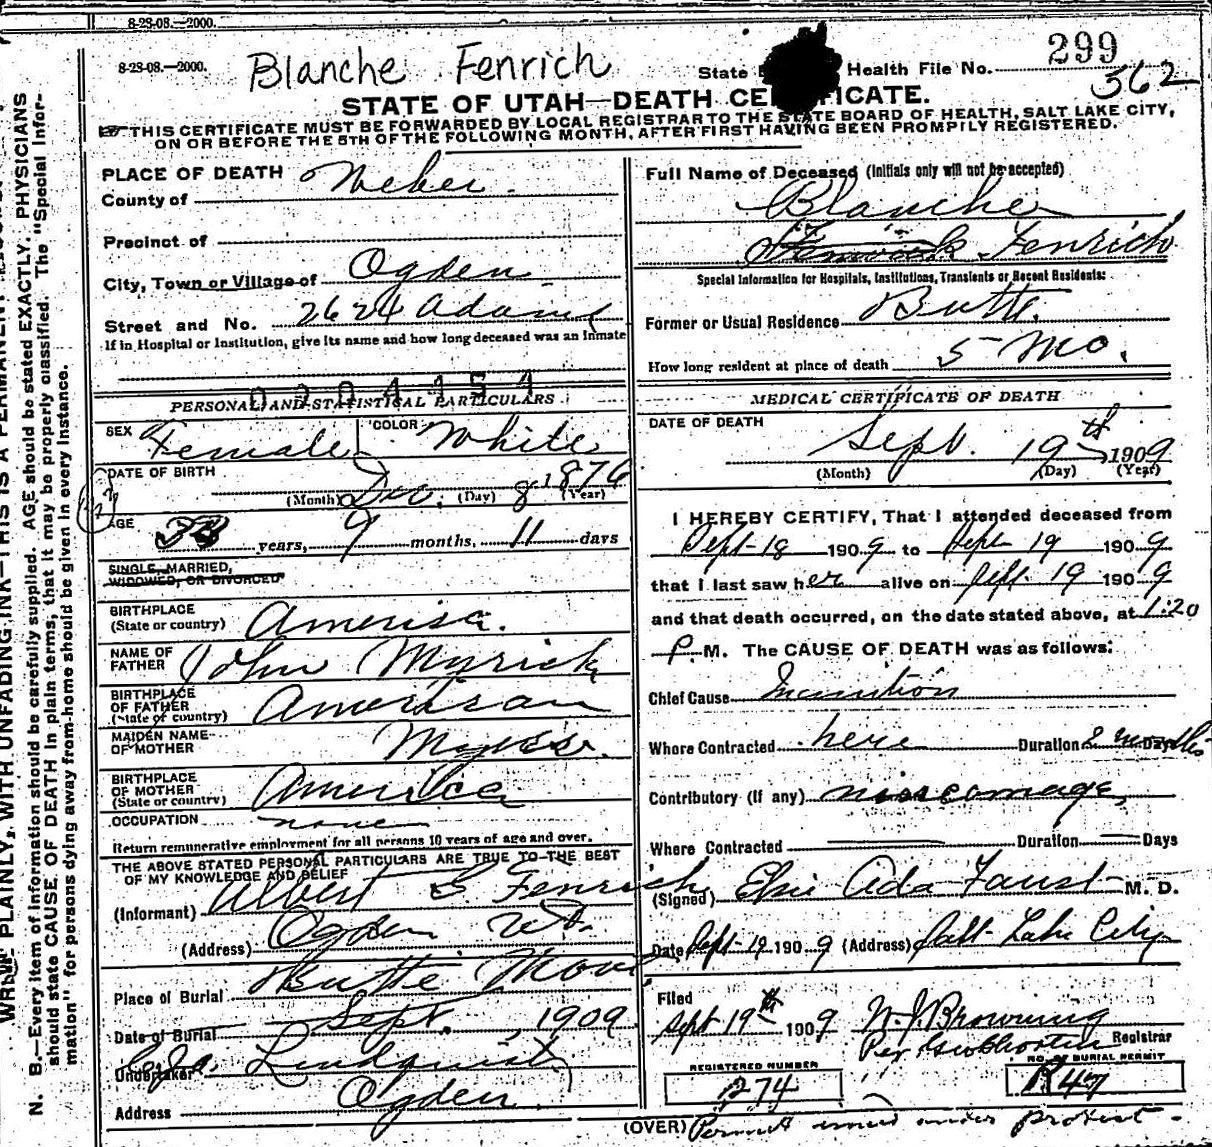 8-28-08.—2000.
8-28-08.—2000.
Blanche Fenrich
State Health File No. 299
562
STATE OF UTAH—DEATH CERTIFICATE.
THIS CERTIFICATE MUST BE FORWARDED BY LOCAL REGISTRAR TO THE STATE BOARD OF HEALTH, SALT LAKE CITY,
ON OR BEFORE THE 5TH OF THE FOLLOWING MONTH, AFTER FIRST HAVING BEEN PROMPTLY REGISTERED.
PLACE OF DEATH
County of Weber.
Precinct of
City, Town or Village of Ogden
Street and No. 2624 Adams
If in Hospital or Institution, give its name and how long deceased was an Inmate
0204151
PERSONAL AND STATISTICAL PARTICULARS
SEX Female COLOR White
DATE OF BIRTH Dec. 8 1876
(Month) (Day) (Year)
AGE years, 9 months, 11 days
SINGLE, MARRIED,
WIDOWED, OR DIVORCED
BIRTHPLACE
(State or country) America.
NAME OF
FATHER John Myrick
BIRTHPLACE
OF FATHER
(State of country) American
MAIDEN NAME
OF MOTHER
BIRTHPLACE
OF MOTHER
(State or country) America
OCCUPATION none
Return remunerative employment for all persons 10 years of age and over.
THE ABOVE STATED PERSONAL PARTICULARS ARE TRUE TO THE BEST
OF MY KNOWLEDGE AND BELIEF
(Informant) Albert S Fenrich
(Address) Ogden Ut.
Place of Burial Butte
Date of Burial Sept. , 1909
Undertaker Lindquist
Address Ogden.
Full Name of Deceased (Initials only will not be accepted)
Blanche
Fenrich
Special Information for Hospitals, Institutions, Transients or Recent Residents:
Former or Usual Residence Butte.
How long resident at place of death 5 mo.
MEDICAL CERTIFICATE OF DEATH
DATE OF DEATH
Sept. 19th 1909
(Month) (Day) (Year)
I HEREBY CERTIFY, That I attended deceased from
Sept-18 1909 to Sept 19 1909
that I last saw her alive on Sept. 19 1909
and that death occurred, on the date stated above, at 1:20
P.M. The CAUSE OF DEATH was as follows:
Chief Cause Inanition
Where Contracted here Duration 2 months Days
Contributory (If any) miscarriage,
Where Contracted Duration Days
(Signed) Elsie Ada Faust M. D.
Date Sept-19 1909 (Address) Salt Lake City
Filed
Sept 19th 1909 N. J. Browning
Per Registrar
REGISTERED NUMBER
274
NO. OF BURIAL PERMIT
R47
(OVER) Permit issued under protest-
N. B.—Every item of Information should be carefully supplied. AGE should be stated EXACTLY. PHYSICIANS
should state CAUSE OF DEATH in plain terms, that it may be properly classified. The "Special Infor-
mation" for persons dying away from home should be given in every instance.
WRITE PLAINLY, WITH UNFADING INK—THIS IS A PERMANENT